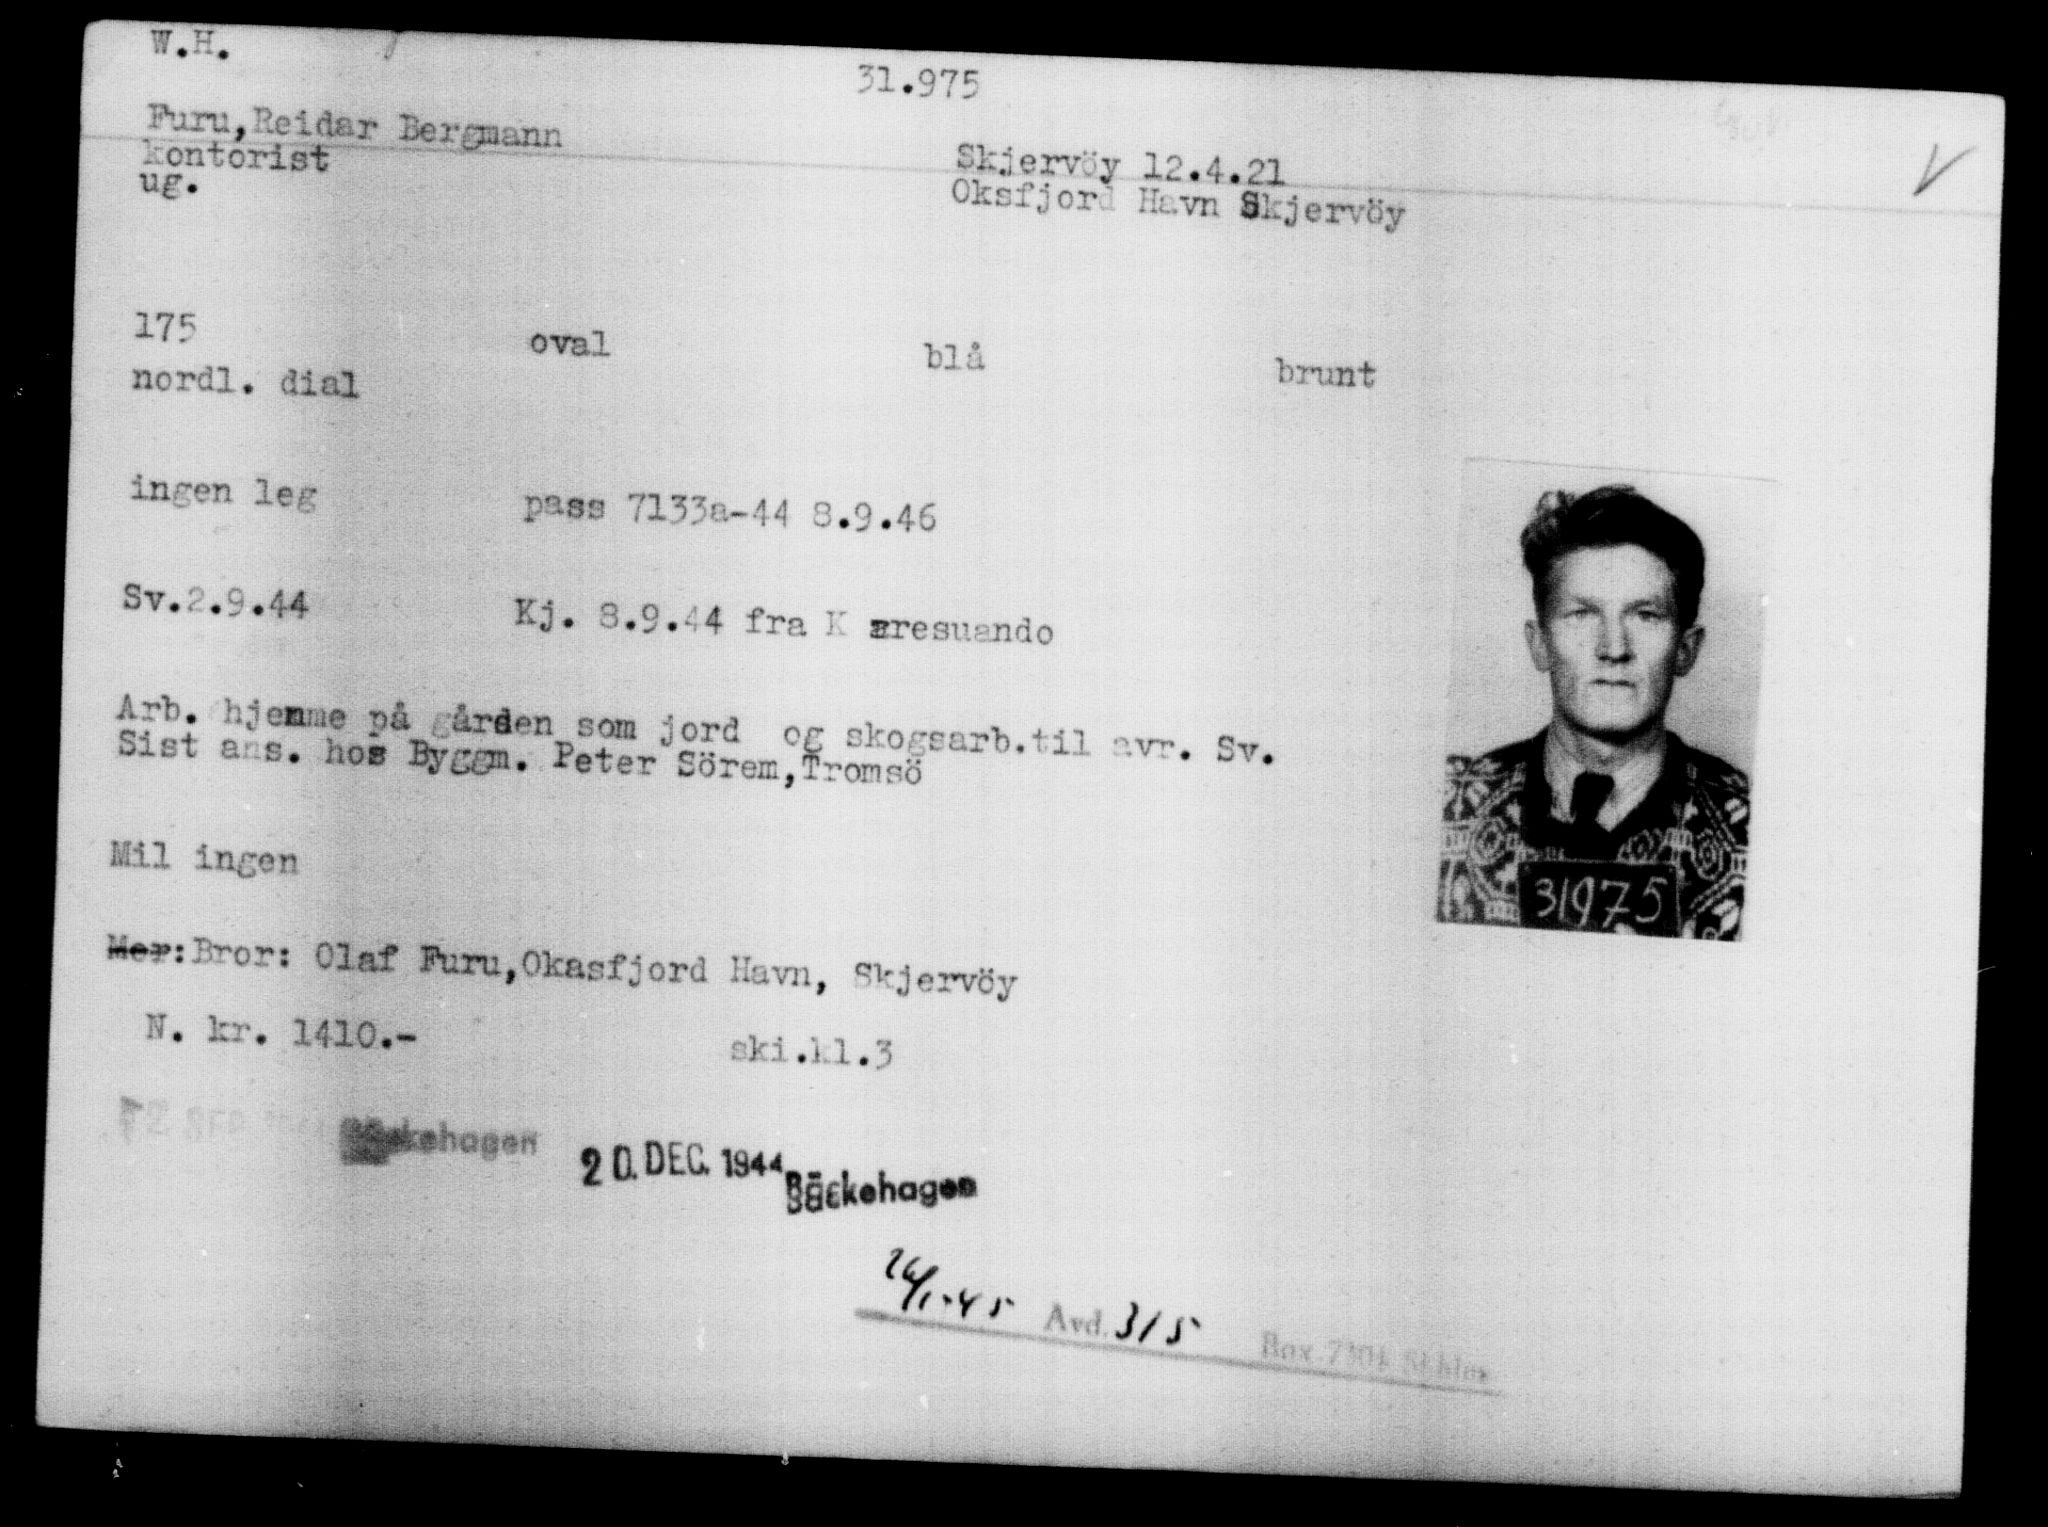 W.H.
31.975
Furu,Reidar Bergmann
kontorist
Skjervöy 12.4.21
ug.
Oksfjord Havn Skjervöy
175 oval blå brunt
nordl. dial
ingen leg pass 7133a-44 8.9.46
Sv.2.9.44 Kj. 8.9.44 fra K aresuando
Arb. hjemme på gården som jord og skogsarb.til avr. Sv.
Sist ans. hos Byggm. Peter Sörem,Tromsö
Mil ingen
Mor: Bror: Olaf Furu,Okasfjord Havn, Skjervöy
N. kr. 1410.- ski.kl.3
31975
Bäckehagen
20. DEC. 1944 Bäckehagen
26/1-45 Avd. 315 Box 7301